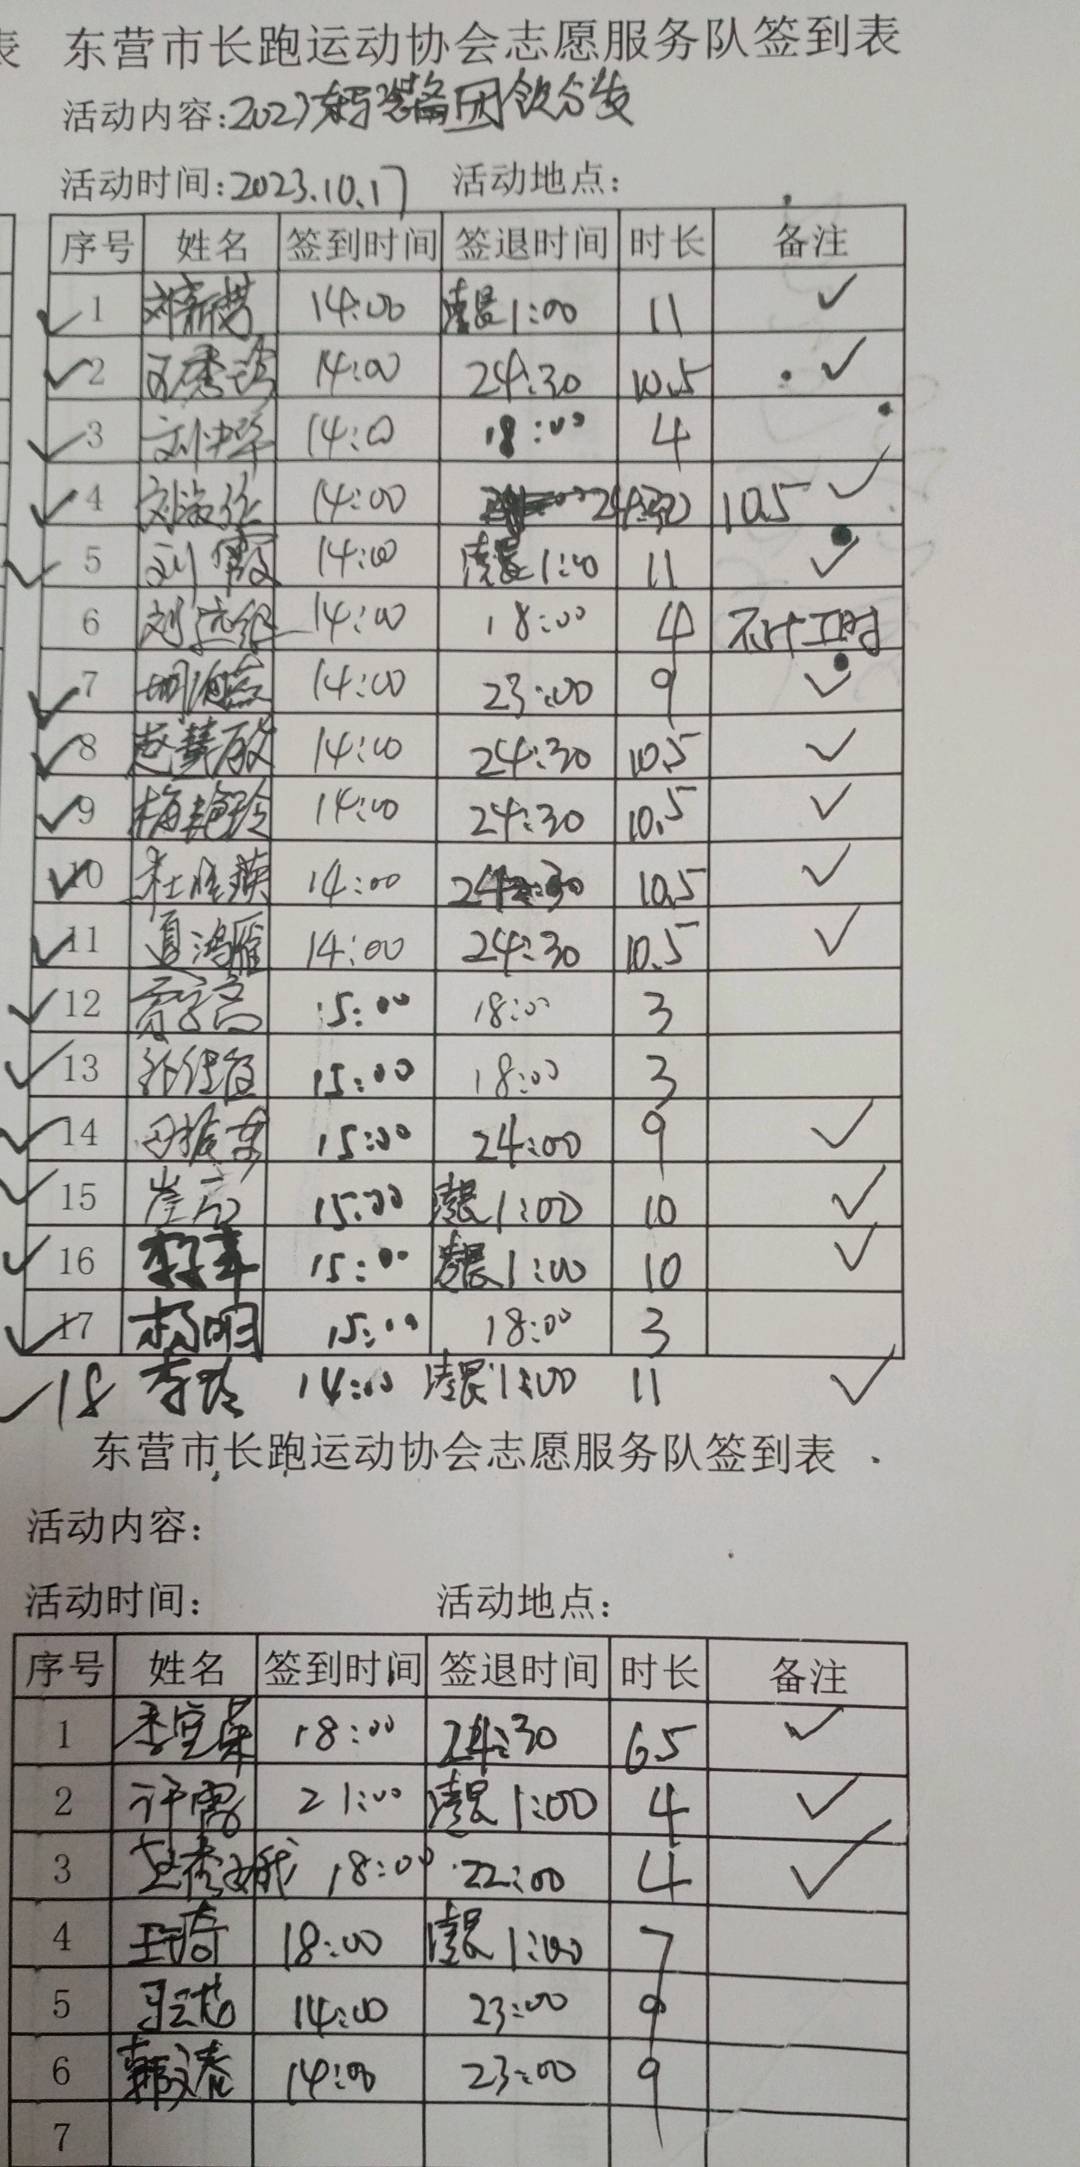 表 东营市长跑运动协会志愿服务队签到表
活动内容:2023 装备 分发
活动时间:2023.10.17 活动地点:
序号 姓名 签到时间 签退时间 时长 备注
1 刘新芳 14:00 凌晨1:00 11 ✓
2 14:00 24:30 10.5 ✓
3 14:00 18:00 4
4 14:00 24:30 10.5 ✓
5 刘霞 14:00 凌晨1:00 11 ✓
6 14:00 18:00 4 不计工时
7 胡海燕 14:00 23:00 9 ✓
8 赵慧敏 14:00 24:30 10.5 ✓
9 梅艳玲 14:00 24:30 10.5 ✓
10 14:00 24:30 10.5 ✓
11 夏鸿雁 14:00 24:30 10.5 ✓
12 15:00 18:00 3
13 15:00 18:00 3
14 田振东 15:00 24:00 9 ✓
15 15:00 凌晨1:00 10 ✓
16 15:00 凌晨1:00 10 ✓
17 杨明 15:00 18:00 3
18 李玲 14:00 凌晨1:00 11 ✓
东营市长跑运动协会志愿服务队签到表
活动内容:
活动时间: 活动地点:
序号 姓名 签到时间 签退时间 时长 备注
1 18:00 24:30 6.5 ✓
2 许霞 21:00 凌晨1:00 4 ✓
3 18:00 22:00 4 ✓
4 王琦 18:00 凌晨1:00 7
5 14:00 23:00 9
6 韩文春 14:00 23:00 9
7